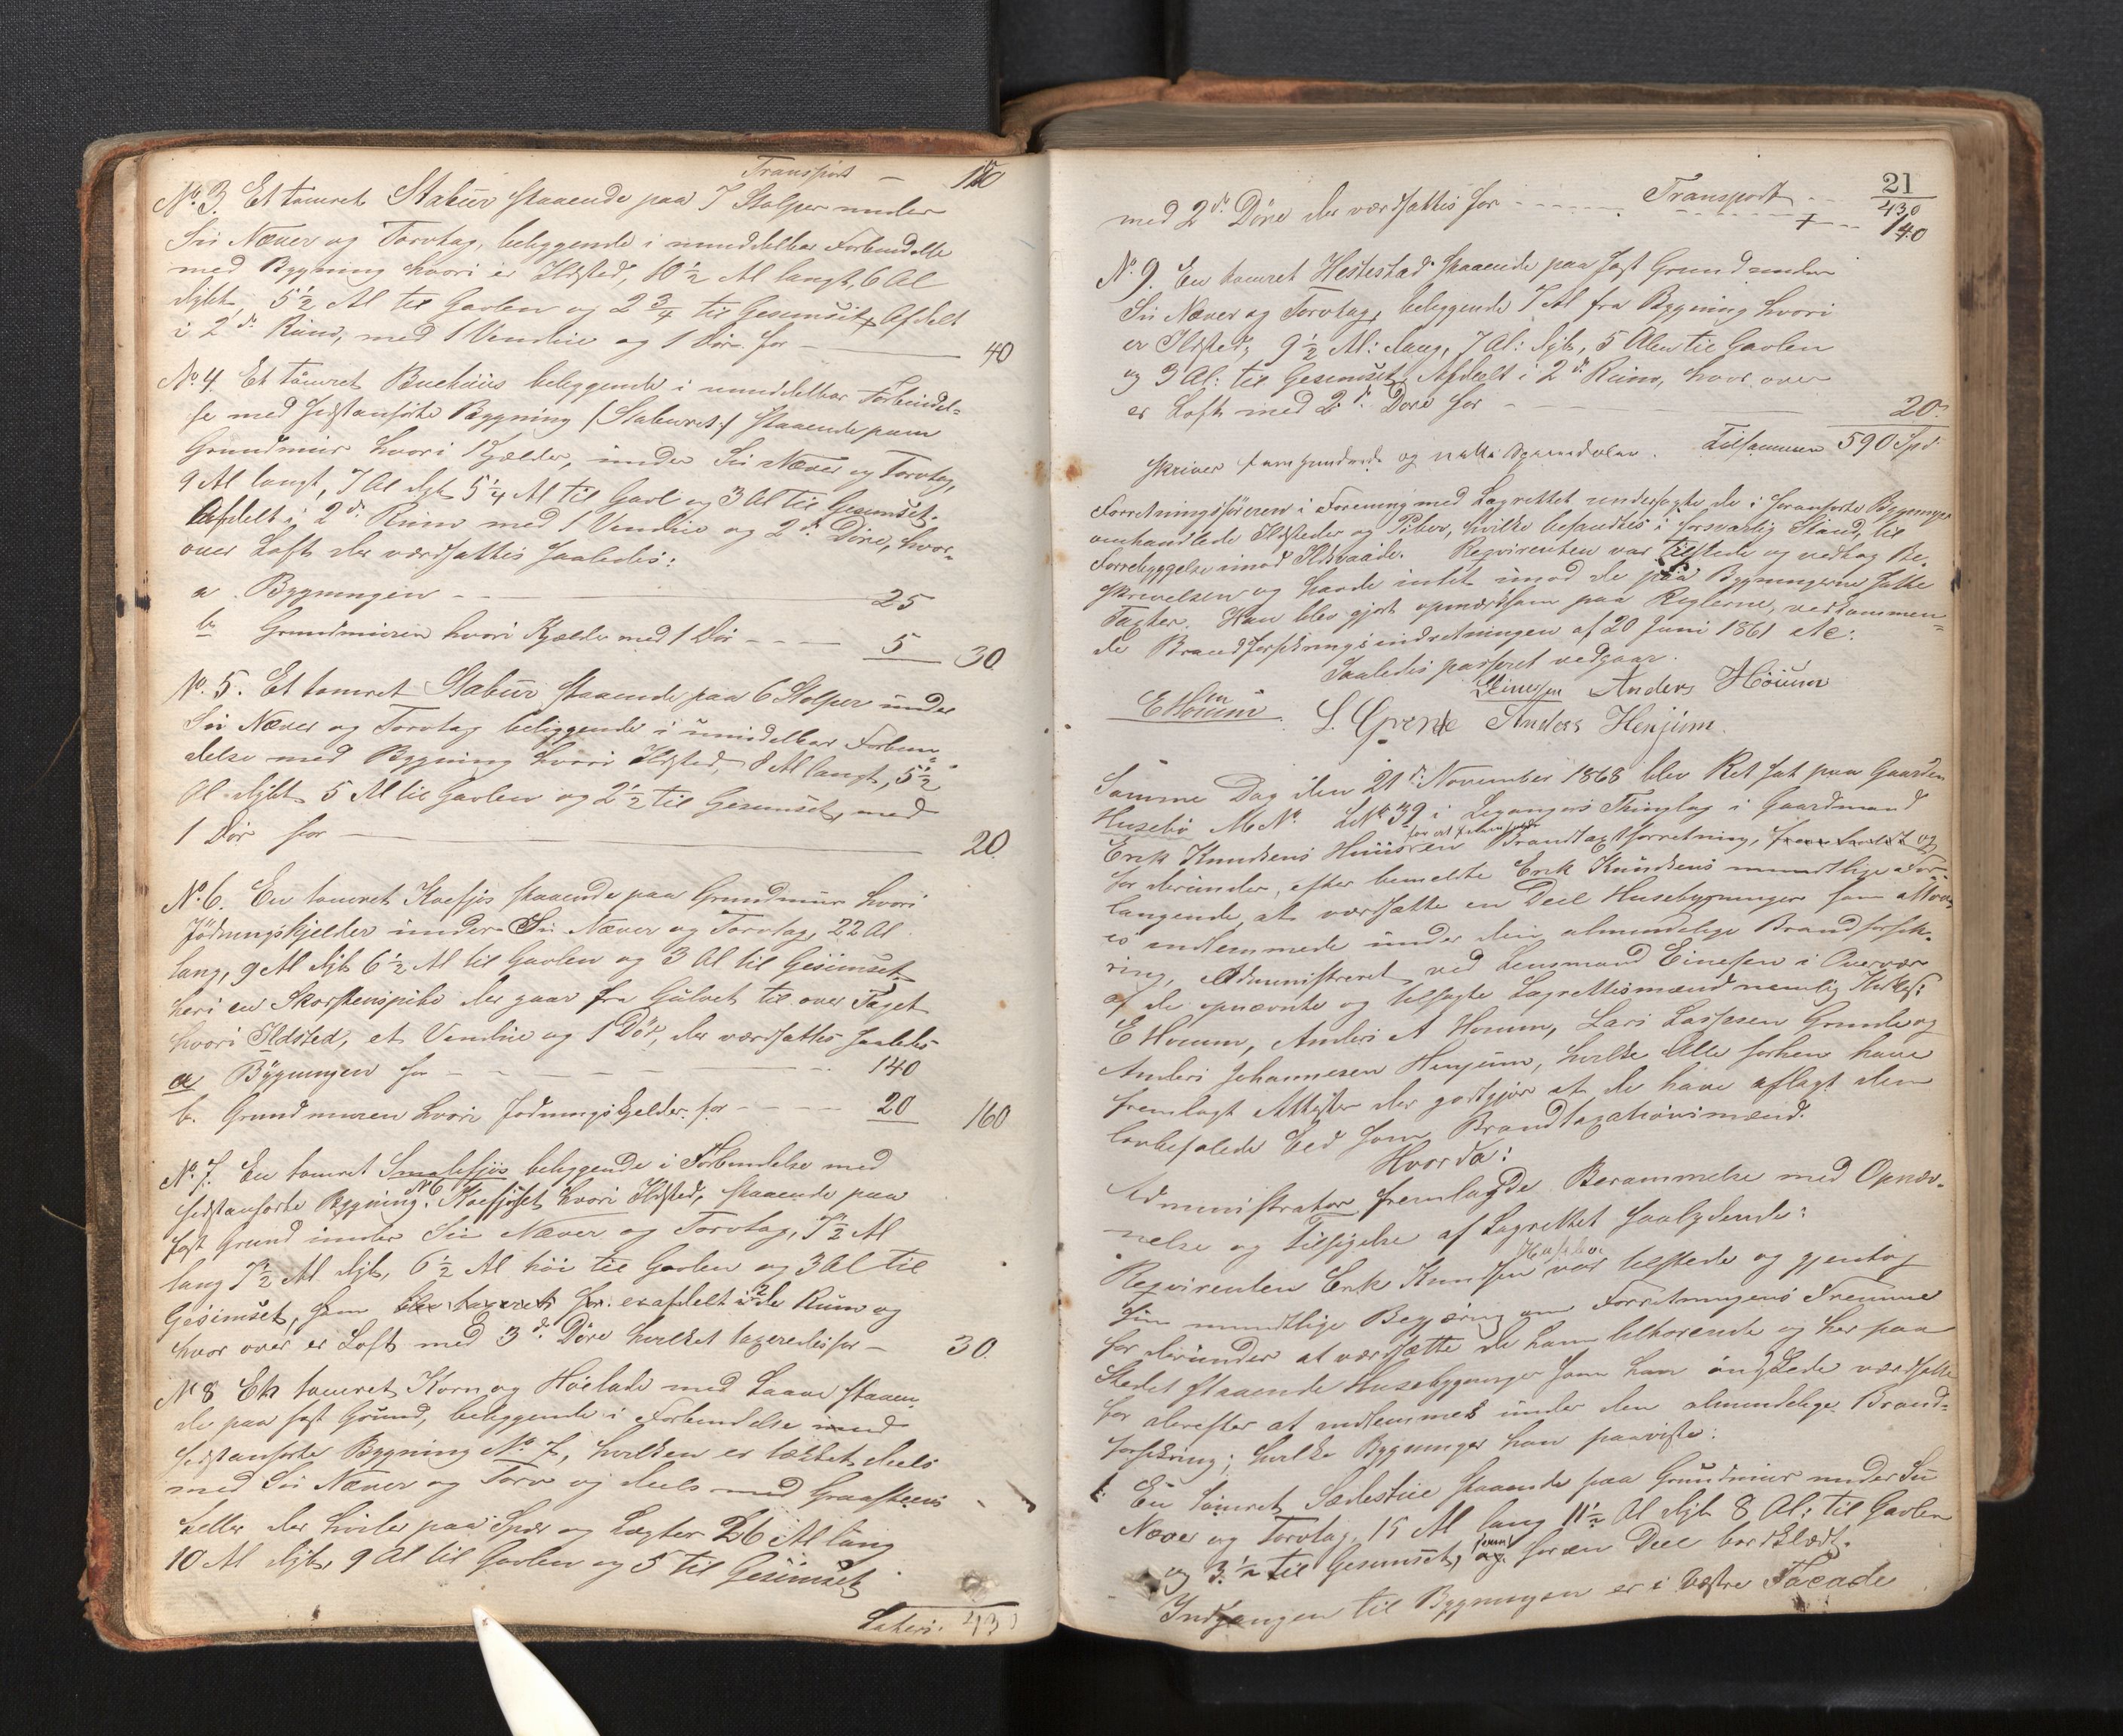 Transport — 150
No 3. Et tømret Stabur staaende paa 7 Stolper under
Su Næver og Torvtag, beliggende i umiddelbar Forbindelse
med Bygning hvori er Ildsted, 10 1/2 Al langt, 6 Al
dybt, 5 1/2 Al til Gavlen og 2 3/4 til Gesimset, Afdelt
i 2de Rum, med 1 Vindue og 1 Dør for — 40
No 4. Et tømret Buehuus beliggende i umiddelbar Forbindel-
se med sidstanførte Bygning /: Staburet :/ staaende paa
Grundmuur hvori 1 Kjelder, under Su Næver og Torvtag,
9 Al langt, 7 Al dybt 5 1/4 Al til Gavl og 3 Al til Gesimset.
Afdelt i 2de Rum med 1 Vindue og 2de Døre, hvor-
over Loft der værdsattes saaledes:
a. Bygningen - - 25
b. Grundmuren hvori Kjelder med 1 Dør - - - 5 30
No. 5. Et tømret Stabur staaende paa 6 Stolper under
Su Næver og Torvtag beliggende i umidelbar Forbin-
delse med Bygning hvori Ildsted, 8 Al langt, 5 1/2
Al dybt 5 Al til Gavlen og 2 1/2 til Gesimset, med
1 Dør for — 20
No. 6. En tømret Koefjøs staaende paa Grundmuur hvori
Jødningskjelder under Su Næver og Torvtag, 22 Al
lang, 9 Al dyb 6 1/2 Al til Gavlen og 3 Al til Gesimset
heri en Skorstenspibe der gaar fra Gulvet til over Taget
hvori Ildsted, et Vindue og 1 Dør, der værdsattes saaledes
a Bygningen for - - - - - 140
b. Grundmuren hvori Jødningskjelder for - - - - 20 160
No. 7. En tømret Smalefjøs beliggende i Forbindelse med
sidstanførte Bygning No 6 Koefjøset hvori Ildsted, staaende paa
fast Grund under Su Næver og Torvtag, 7 1/2 Al
lang 7 1/2 Al dyb, 6 1/2 Al høi til Gavlen og 3 Al til
Gesimset, som blev taxeret for. er afdelt i 2de Rum og
hvor over er Loft med 3de Døre hvilket taxeredes for — 30.
No 8 En tømret Korn og Høelade med Laave staaen-
de paa fast Grund, beliggende i Forbindelse med
sidstanførte Bygning No 7, hvilken er tækket deels
med Su Næver og Torv og deels med Graasteens
heller der hviler paa Spær og Lægter 26 Al lang
10 Al dyb, 9 Al til Gavlen og 5 til Gesimset
Lateris. 430
21
Transport - - 430
med 2de Døre der værdsattes for - - - - - 140
No. 9. En tømret Hestestad staaende paa fast Grund under
Su Næver og Torvtag, beliggende 7 Al fra Bygning hvori
er Ildsted, 9 1/2 Al: lang, 7 Al: dyb, 5 Alen til Gavlen
og 3 Al: til Gesimset, Afdeelt i 2de Rum, hvor over
er Loft med 2de Døre for — 20.
Tilsammen 590 Spd
skriver femhundrede og nitti Speciedaler.
Forretningsføreren i Forening med Lagrettet undersøgte de i foranførte Bygninger
omhandlede Ildsteder og Piber, hvilke befandtes i forsvarlig Stand, til
Forrebyggelse imod Ildsvaade. Reqvirenten var tilstede og vedtog Be-
skrivelsen og havde intet imod de paa Bygningerne satte
Taxter. Han blev gjort opmærksom paa Reglerne, vedkommen-
de Brandforsikringsindretningen af 20 Juni 1861 etc:
Saaledes passeret vedgaar.
Einersen Anders Houum
E Houum. L. Grende Anders Henjum.
Samme Dag den 21de November 1868 blev Ret sat paa Gaarden
Husebø M No LNo 39 i Leganger Thinglag i Gaardmand
Erik Knudsens Huus for at foretage en Brandtaxtforretning, og
for derunder, efter bemeldte Erik Knudsens mundtlige For-
langende, at værdsætte en Deel Husebygninger som attraa-
es indlemmede under den almindelige Brandforsik-
ring, Administreret ved Lensmand Einesen i Overvær
af de opnævnte og tilsagte Lagrettesmænd nemlig Kirkes:
E Houum, Anders A Houum, Lars Larssen Grinde og
Anders Johannesen Henjum, hvilke Alle forhen have
fremlagt Attester der godtgjør at de have aflagt den
lovbefalede Eed som Brandtaxationsmænd.
Hvorda:
Administrator fremlagde Berammelse med Opnæv-
nelse og Tilsigelse af Lagrettet saalydende:
Reqvirenten Erik Knudsen Husebø var tilstede og gjentog
sin mundtlige Begjæring om Forretningens Fremme
for derunder at værdsætte de ham tilhørende og her paa
Stedet staaende Husebygninger som han ønskede værdsatte
for derefter at indlemmes under den almindelige Brand-
forsikring; hvilke Bygninger han paaviste:
1. En tømret Sædestue staaende paa Grundmuur under Su
Næver og Torvtag, 15 Al lang 11 1/2 Al dyb 8 Al: til Gavlen
og 3 1/2 til Gesimset, og for en Deel bordklædt.
Indgangen til Bygningen er i Vestre Facade